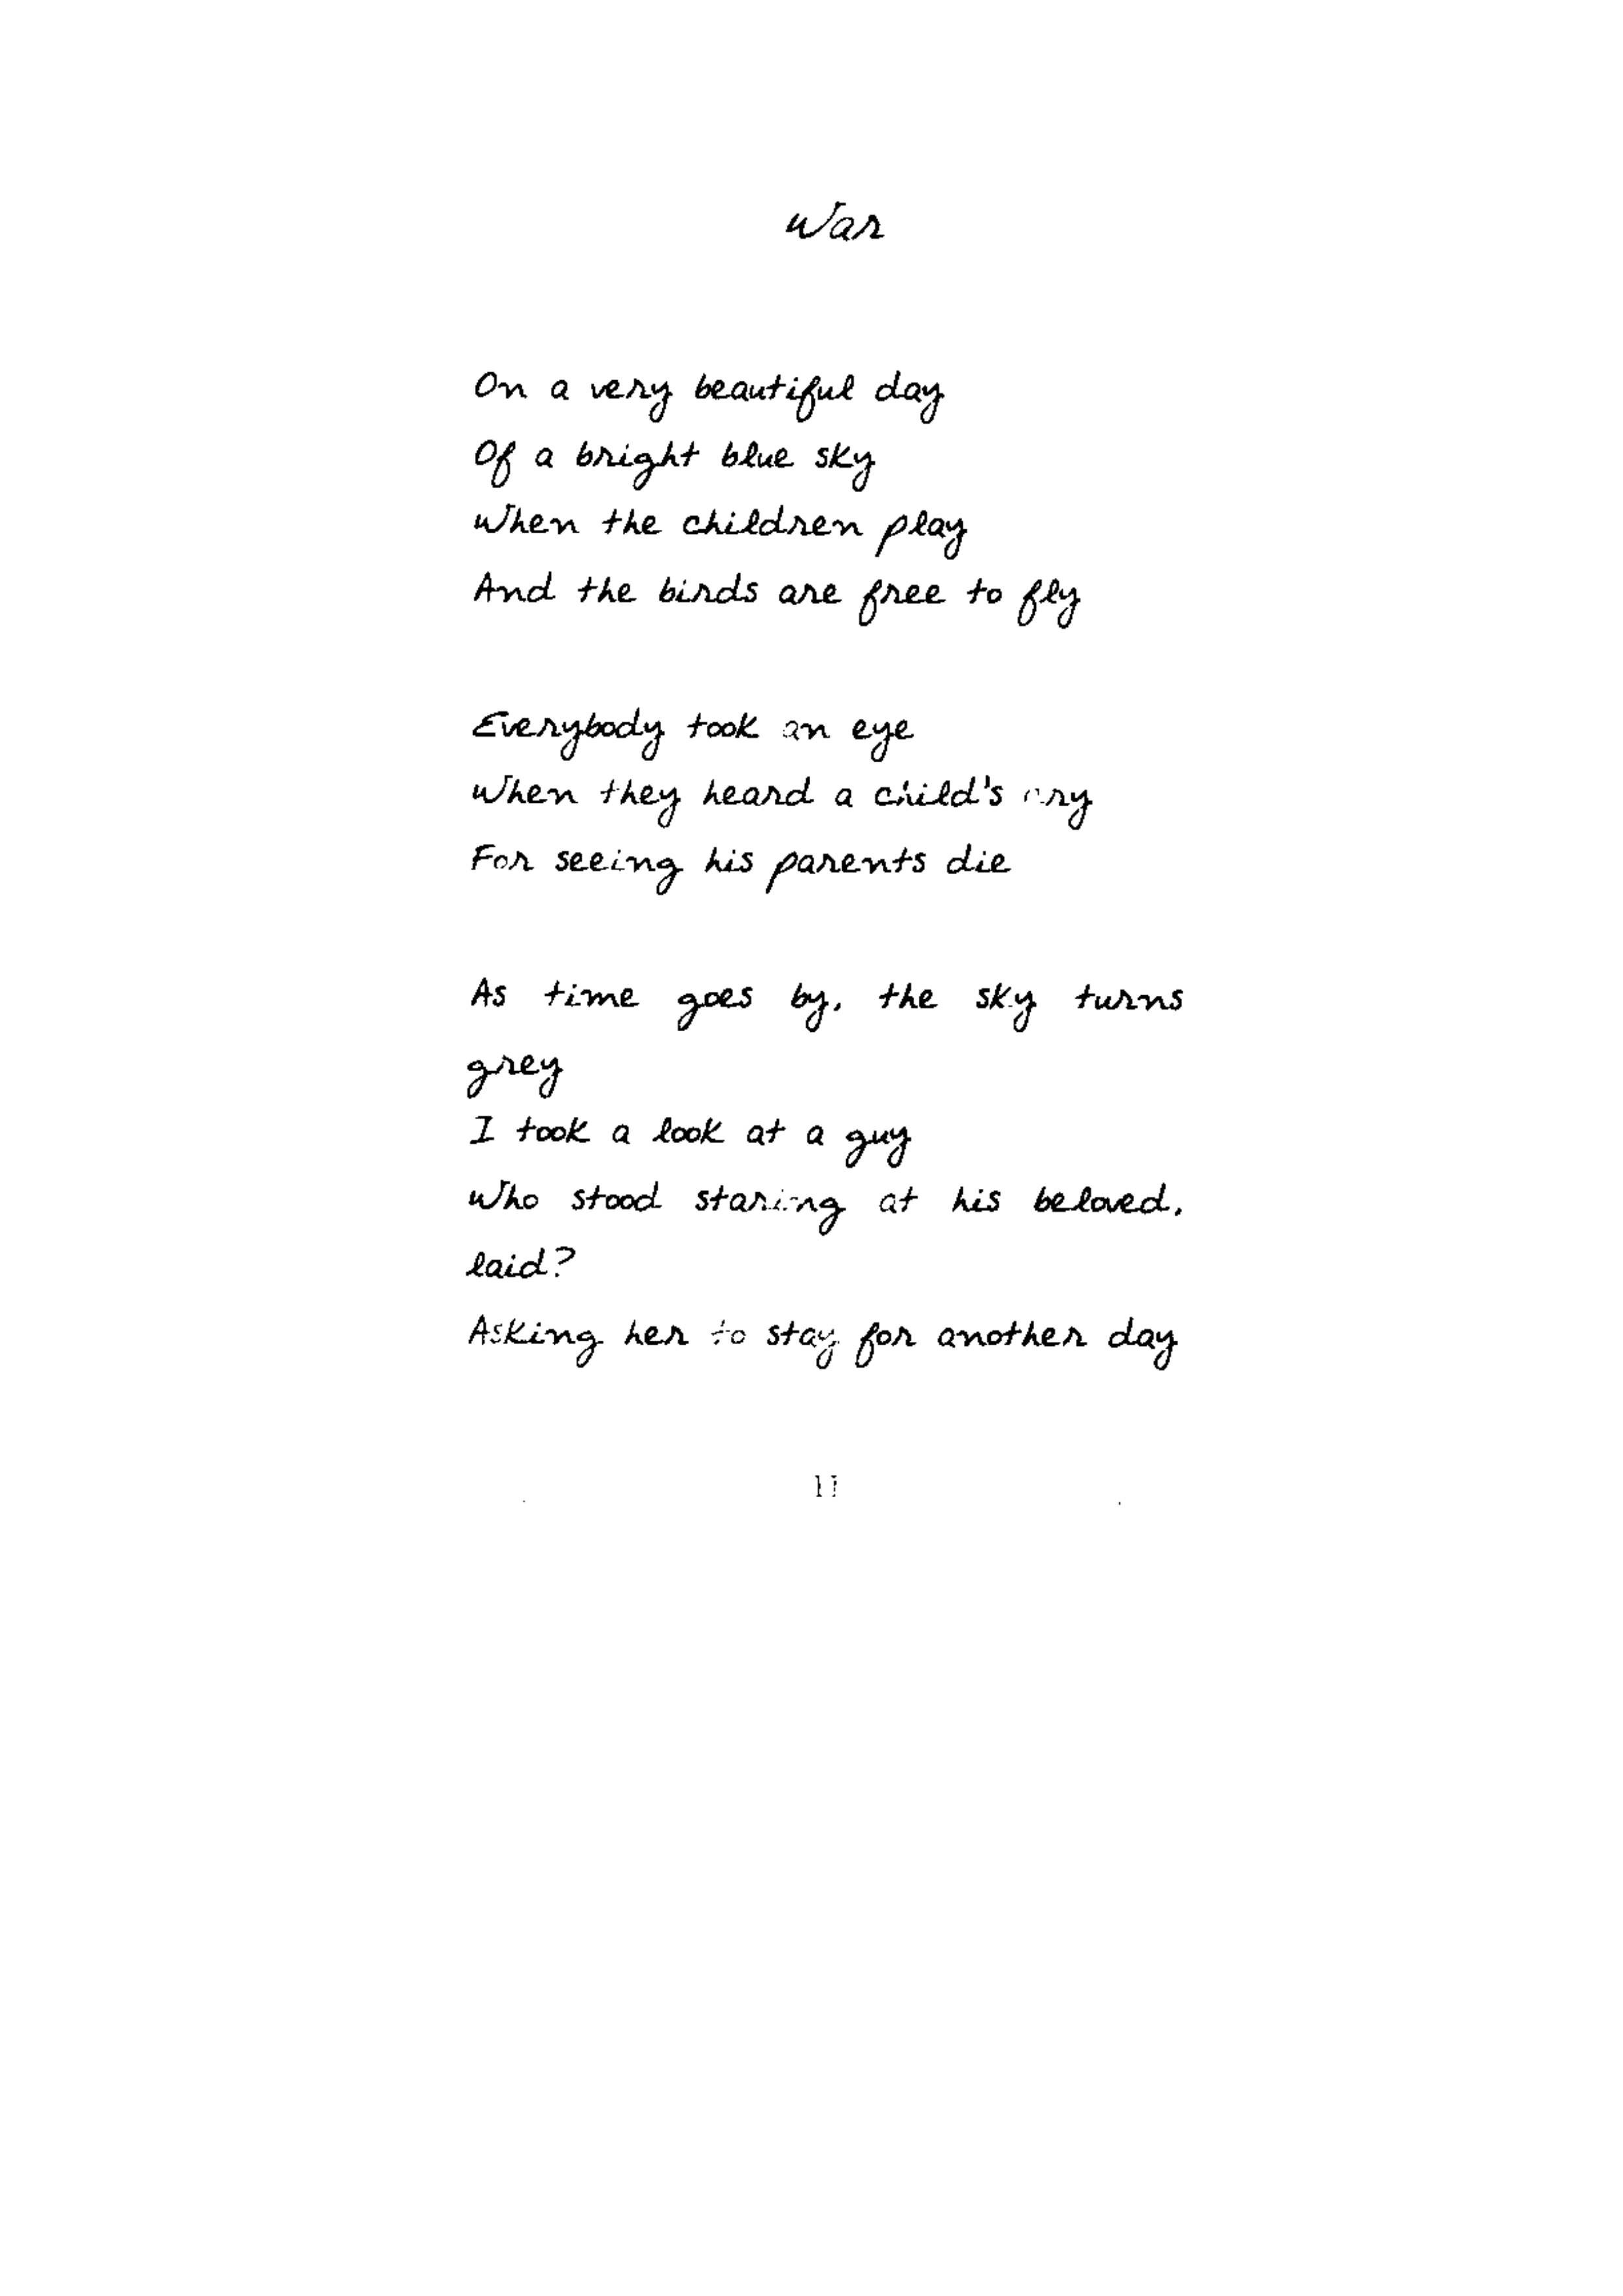 War
On a very beautiful day
Of a bright blue sky
When the children play
And the birds are free to fly
Everybody took an eye
When they heard a child's cry
For seeing his parents die
As time goes by, the sky turns
grey
I took a look at a guy
Who stood staring at his beloved,
laid?
Asking her to stay for another day
11